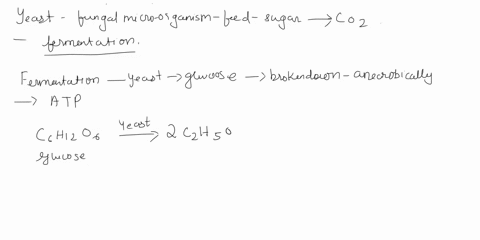 Yeast - fungal micro-organism-feed-sugar → CO2
- fermentation.
Fermentation — yeast → glucose → brokendown - anecrobically
→ ATP
C6H12O6 yeast → 2 C2H50
glucose